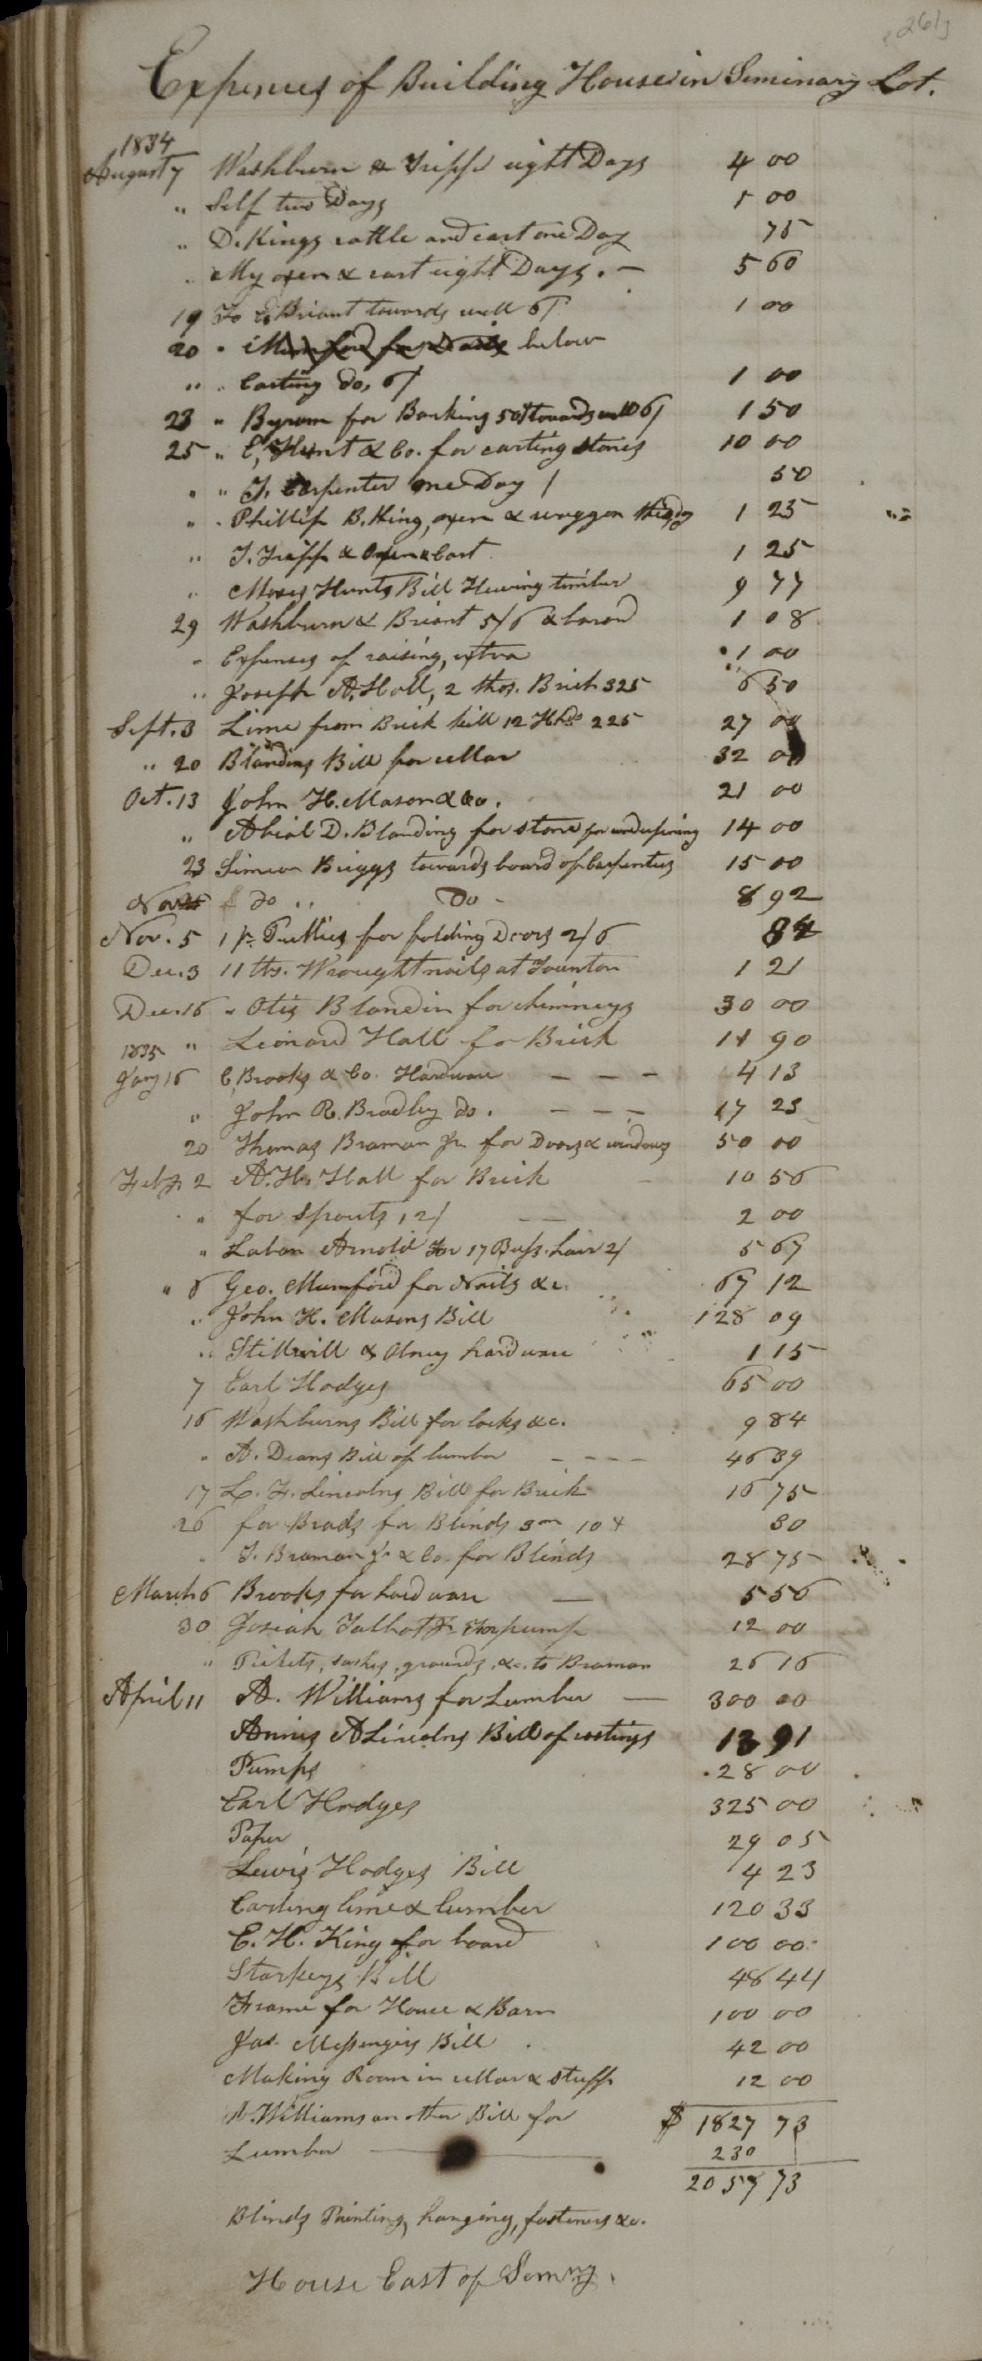 261
Expenses of Building House in Seminary Lot.
1834
August 7 Washburn & Tripp eight Days 4 00
" Self two Days 1 00
" D. Kings cattle and cart one Day 75
" My oxen & cart eight Days. - 5 60
19 To Briant towards well 6/ 1 00
20 " Mumford for Nails below
" " Carting do, 6/ 1 00
23 " Byrom for Banking 50 towards well 6/ 1 50
25 " E, Hunt & Co. for carting stones 10 00
" " T. Carpenter one Day / 50
" " Phillip B. King, oxen & waggon 1 25
" T. Tripp & Oxen & Cart 1 25
" Moses Hunts Bill Hewing timber 9 77
29 Washburn & Briant 5/6 & board 1 08
" Expenses of raising, extra 1 00
" Joseph A. Hall, 2 thos. Brick 325 6 50
Sept. 3 Lime from Brick kill 12 Hhds 225 27 00
" 20 Blandins Bill for cellar 32 00
Oct. 13 John H. Mason & Co. 21 00
" Abial D. Blanding for stone for underpining 14 00
23 Simeon Briggs towards board of Carpenters 15 00
Nov do " Do - 8 92
Nov. 5 1 pr. Pullies for folding Doors 2/6 84
Dec. 3 11 lbs. Wrought nails at Taunton 1 21
Dec. 16 " Otis Blandin for chimneys 30 00
" Leonard Hall for Brick 11 90
1835
Jany 16 C, Brooks & Co. Hardware - - - 4 13
" John R. Bradley do. - - - 17 25
20 Thomas Braman Jr. for Doors & windows 50 00
Feby 2 A. H. Hall for Brick 10 56
" for spouts 12/ 2 00
" Laban Arnold For 17 Bush. hair 2/ 5 67
" 6 Geo. Mumford for Nails &c. 67 12
" John H. Masons Bill 128 09
" Stillwill & Olney hardware 1 15
7 Earl Hodges 65 00
16 Washburns Bill for locks &c. 9 84
" A. Deans Bill of lumber - - - - 46 39
17 L. F. Lincolns Bill for Brick 16 75
26 for Brads for Blinds 3 m 10 4 30
" T. Braman Jr. & Co. for Blinds 28 75
March 6 Brooks for hardware 5 56
30 Josiah Talbot Jr. For pump 12 00
" Pickets, sashes, grounds, &c. to Braman 26 16
April 11 A. Williams for Lumber 300 00
Annis A Lincolns Bill of castings 13 91
Pumps 28 00
Earl Hodges 325 00
Paper 29 05
Lewis Hodges Bill 4 23
Carting lime & lumber 120 33
E. H. King for board 100 00
Starkeys Bill 48 44
Frame for House & Barn 100 00
Jas. Messengers Bill 42 00
Making Room in cellar & stuff 12 00
A. Williams another Bill for $ 1827 73
Lumber 230
2057 73
Blinds Painting, hanging, fastenings &c.
House East of Semny.